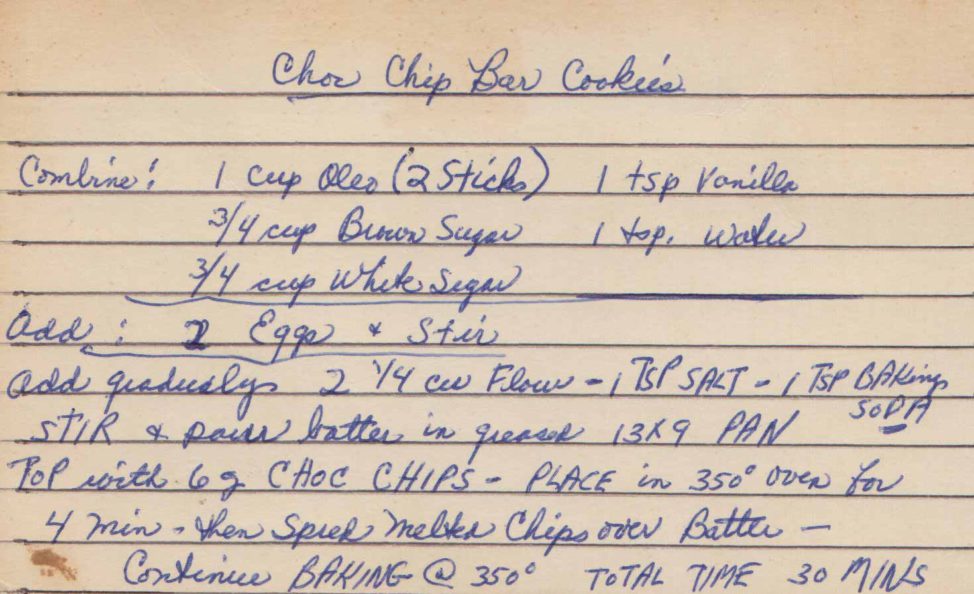 Choc Chip Bar Cookies
Combine: 1 cup Oleo (2 Sticks) 1 tsp Vanilla
3/4 cup Brown Sugar 1 tsp. Water
3/4 cup White Sugar
Add: 2 Eggs & Stir
Add gradually 2 1/4 cu Flour - 1 TSP SALT - 1 TSP BAKing
SODA
STIR & pour batter in greased 13X9 PAN
TOP with 6 oz CHOC CHIPS - PLACE in 350° oven for
4 min - then Spred melted Chips over Batter -
Continue BAKING @ 350° TOTAL TIME 30 MINS